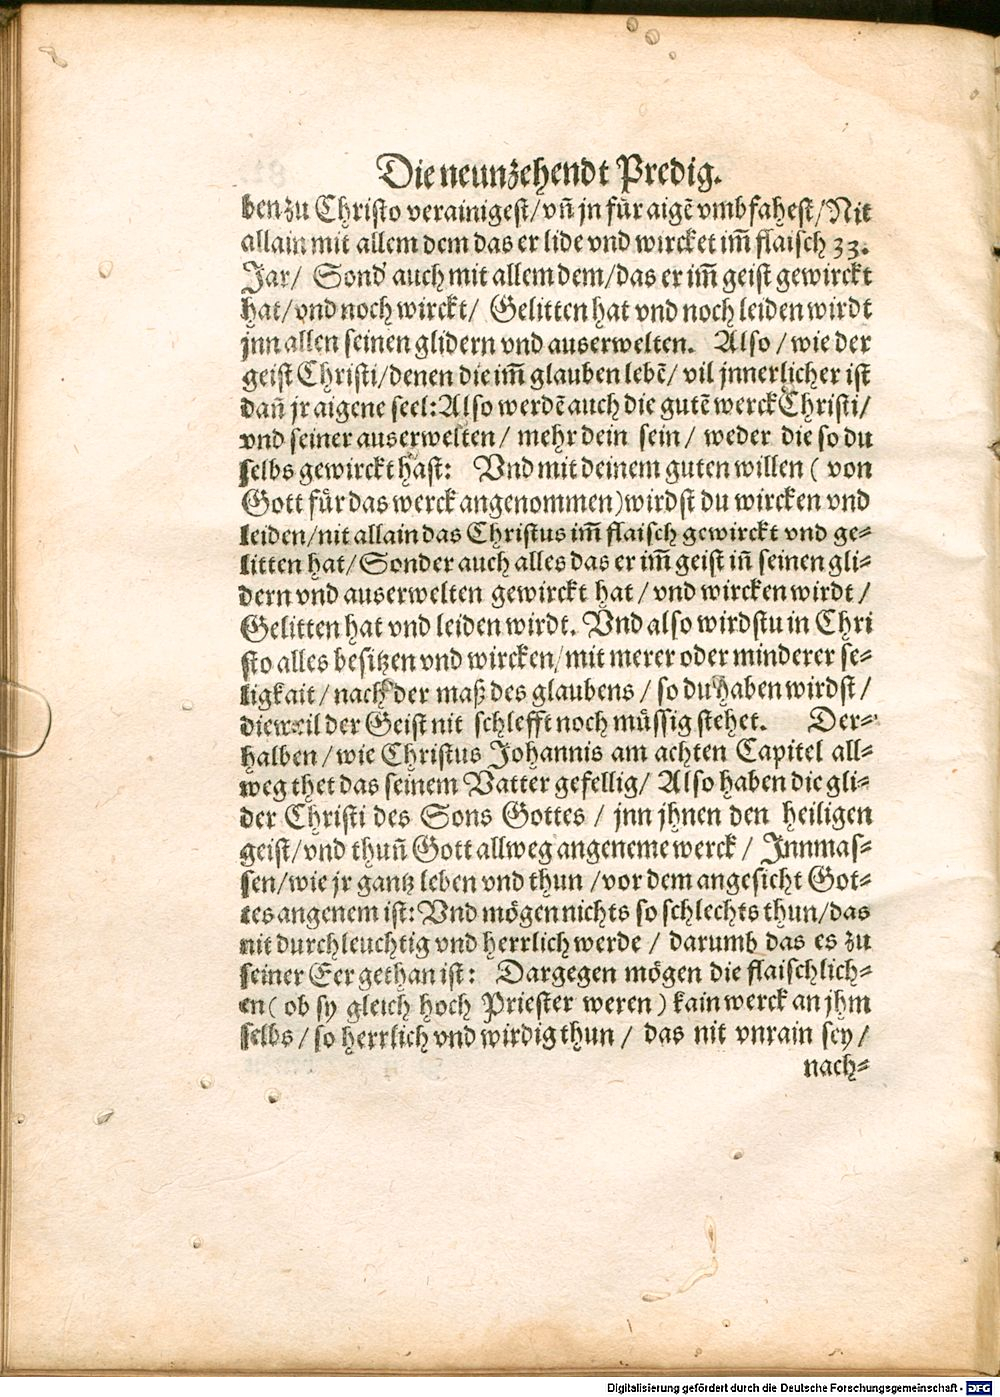 Die neunzehendt Predig.
ben zu Christo verainigest/vñ jn für aigẽ vmbfahest/Nit
allain mit allem dem das er lide vnd wircket im̃ flaisch 33.
Jar/ Sond' auch mit allem dem/das er im̃ geist gewirckt
hat/vnd noch wirckt/ Gelitten hat vnd noch leiden wirdt
jnn allen seinen glidern vnd auserwelten. Also/wie der
geist Christi/denen die im̃ glauben lebẽ/ vil jnnerlicher ist
dañ jr aigene seel:Also werdẽ auch die gutẽ werck Christi/
vnd seiner auserwelten/ mehr dein sein/ weder die so du
selbs gewirckt hast: Vnd mit deinem guten willen ( von
Gott für das werck angenommen)wirdst du wircken vnd
leiden/nit allain das Christus im̃ flaisch gewirckt vnd ge⸗
litten hat/Sonder auch alles das er im̃ geist iñ seinen gli⸗
dern vnd auserwelten gewirckt hat/vnd wircken wirdt/
Gelitten hat vnd leiden wirdt. Vnd also wirdstu in Chri
sto alles besitzen vnd wircken/mit merer oder minderer se⸗
ligkait/nach der maß des glaubens/so du haben wirdst/
dieweil der Geist nit schlefft noch müssig stehet. Der⸗
halben/wie Christus Johannis am achten Capitel all⸗
weg thet das seinem Vatter gefellig/ Also haben die gli⸗
der Christi des Sons Gottes / jnn jhnen den heiligen
geist/vnd thuñ Gott allweg angeneme werck/ Jnnmas⸗
sen/wie jr gantz leben vnd thun/vor dem angesicht Got⸗
tes angenem ist:Vnd mögen nichts so schlechts thun/das
nit durchleuchtig vnd herrlich werde/ darumb das es zu
seiner Eer gethan ist: Dargegen mögen die flaischlich⸗
en( ob sy gleich hoch Priester weren) kain werck an jhm
selbs/so herrlich vnd wirdig thun/ das nit vnrain sey/
nach⸗
Digitalisierung gefördert durch die Deutsche Forschungsgemeinschaft - DFG